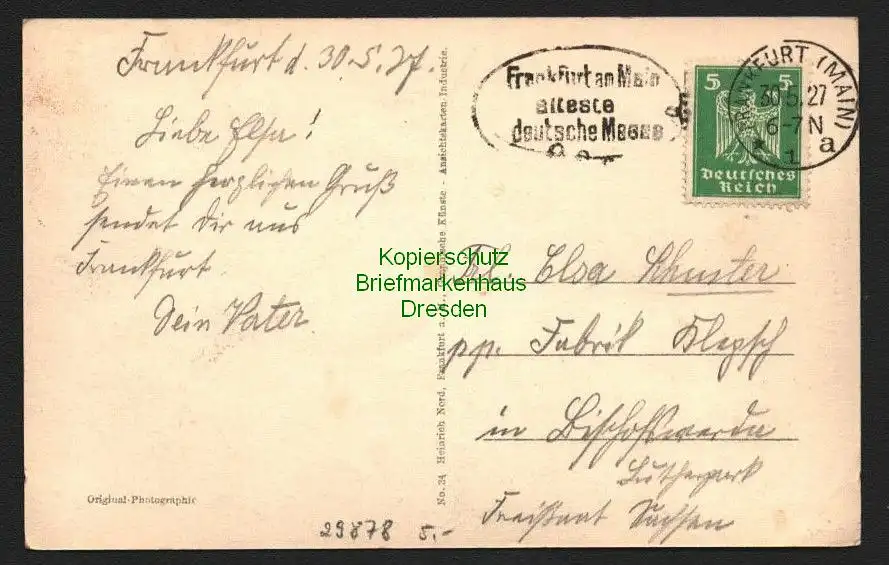 Frankfurt d. 30.5.27.
Liebe Elsa!
Einen herzlichen Gruß
sendet Dir aus
Frankfurt
Dein Vater.
Original-Photographie
No. 34 Heinrich Nord, Frankfurt a. M., Künste - Ansichtskarten-Industrie.
Frankfurt am Main
älteste
deutsche Messe
FRANKFURT (MAIN)
30.5.27
6-7N
* 1 a
5 5
Deutsches
Reich
Kopierschutz
Briefmarkenhaus
Dresden
Frl. Elsa Schuster
pp. Fabrik Klepsch
in Bischofswerda
Lutherpark
Freistaat Sachsen
29878 5.-